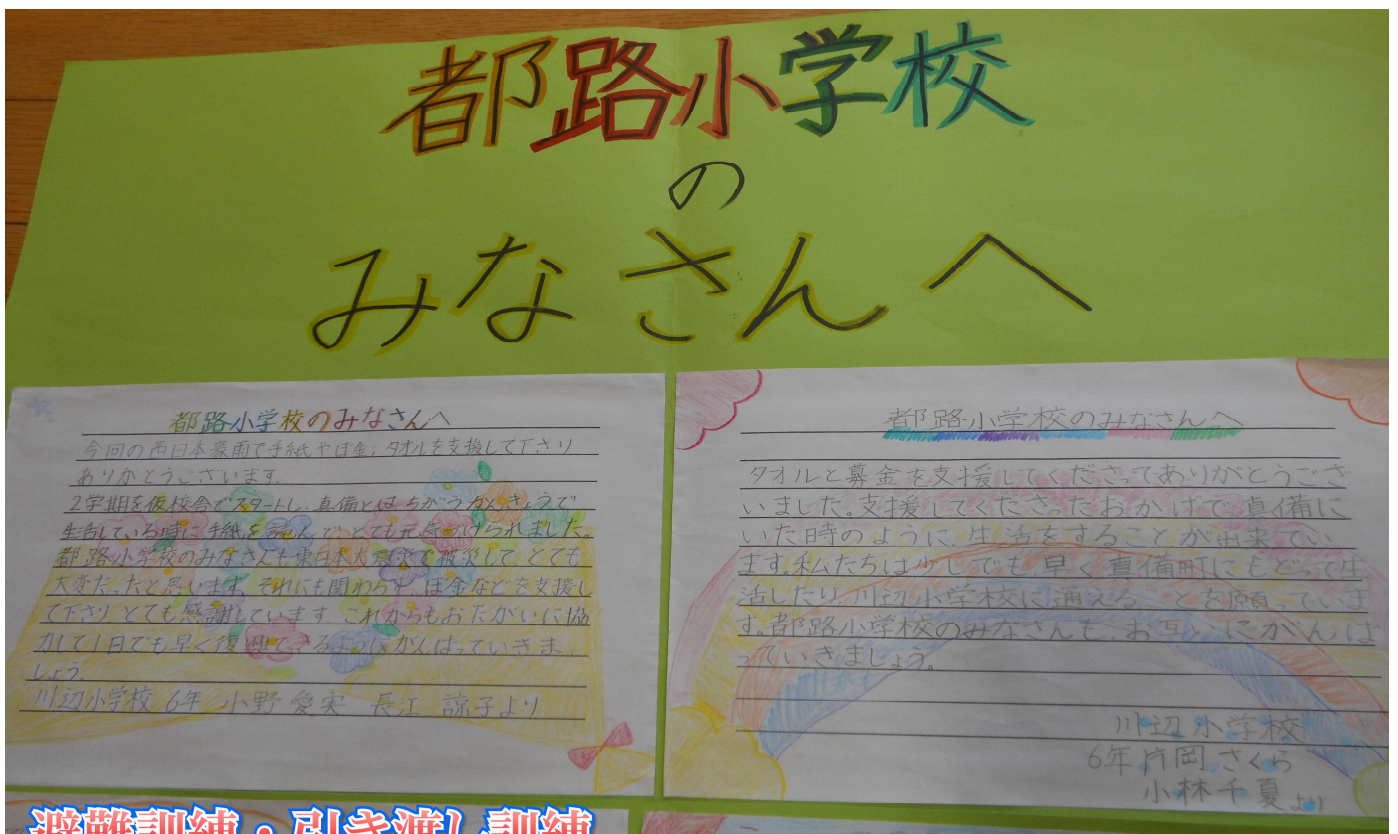 都路小学校
の
みなさんへ
都路小学校のみなさんへ
今回の西日本豪雨で手紙やぼ金、タオルを支援して下さり
ありがとうございます。
2学期を仮校舎でスタートし、真備とはちがうかんきょうで
生活している時に手紙を読んでとても元気づけられました。
都路小学校のみなさんも東日本大震災で被災してとても
大変だったと思います。それにも関わらず、ぼ金などを支援し
て下さりとても感謝しています。これからもおたがいに協
力して1日でも早く復興できるようにがんばっていきま
しょう。
川辺小学校 6年 小野 愛実 長江 諒子より
都路小学校のみなさんへ
タオルと募金を支援してくださってありがとうござ
いました。支援してくださったおかげで真備に
いた時のように生活をすることが出来てい
ます。私たちは少しでも早く真備町にもどって生
活したり川辺小学校に通えることを願っていま
す。都路小学校のみなさんも、お互いにがんば
っていきましょう。
川辺小学校
6年 片岡 さくら
小林千夏より
避難訓練・引き渡し訓練